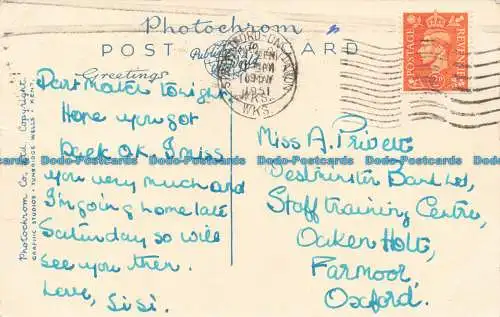 Photochrom
POST CARD
Greetings
Dart Match tonight
Hope you got
back O.K. I miss
you very much and
I'm going home late
Saturday so will
see you then.
Love, Sisi.
Miss A. Privett
Westminster Bank Ltd,
Staff Training Centre,
Oaken Holt,
Farmoor,
Oxford.
Photochrom Co. Ltd. Copyright
GRAPHIC STUDIOS · TUNBRIDGE WELLS · KENT.
STRATFORD-UPON-AVON
1951
WKS.
POSTAGE
REVENUE
Dodo-Postcards Dodo-Postcards Dodo-Postcards Dodo-Postcards Dodo-Postcards